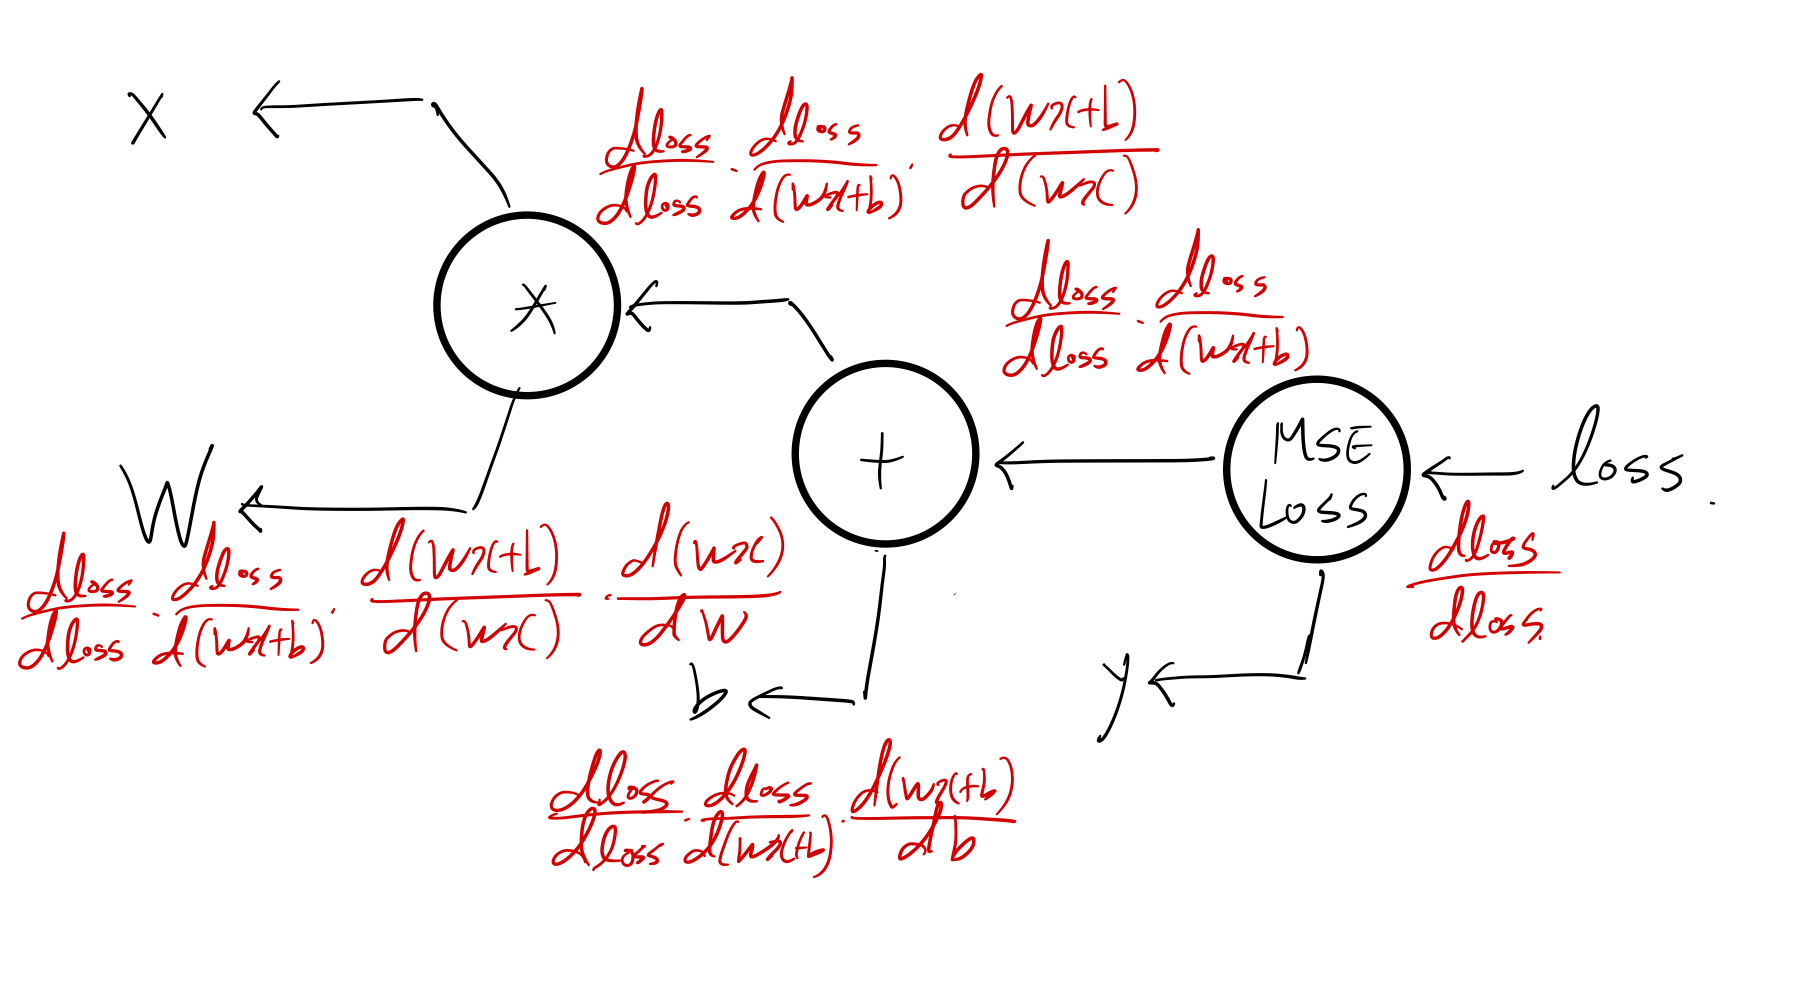 x
dloss/dloss · dloss/d(wx+b) · d(wx+b)/d(wx)
*
dloss/dloss · dloss/d(wx+b)
+
MSE
LOSS
loss.
dloss/dloss
W
dloss/dloss · dloss/d(wx+b) · d(wx+b)/d(wx) · d(wx)/dw
b
y
dloss/dloss · dloss/d(wx+b) · d(wx+b)/db